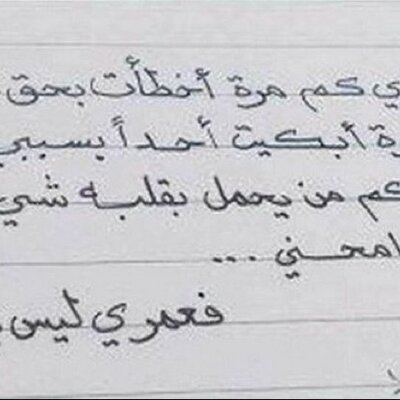 كم مرة أخطأت بحق
أبكيت أحداً بسببي
كم من يحمل بقلبه شي
امحني ...
فعمري ليس